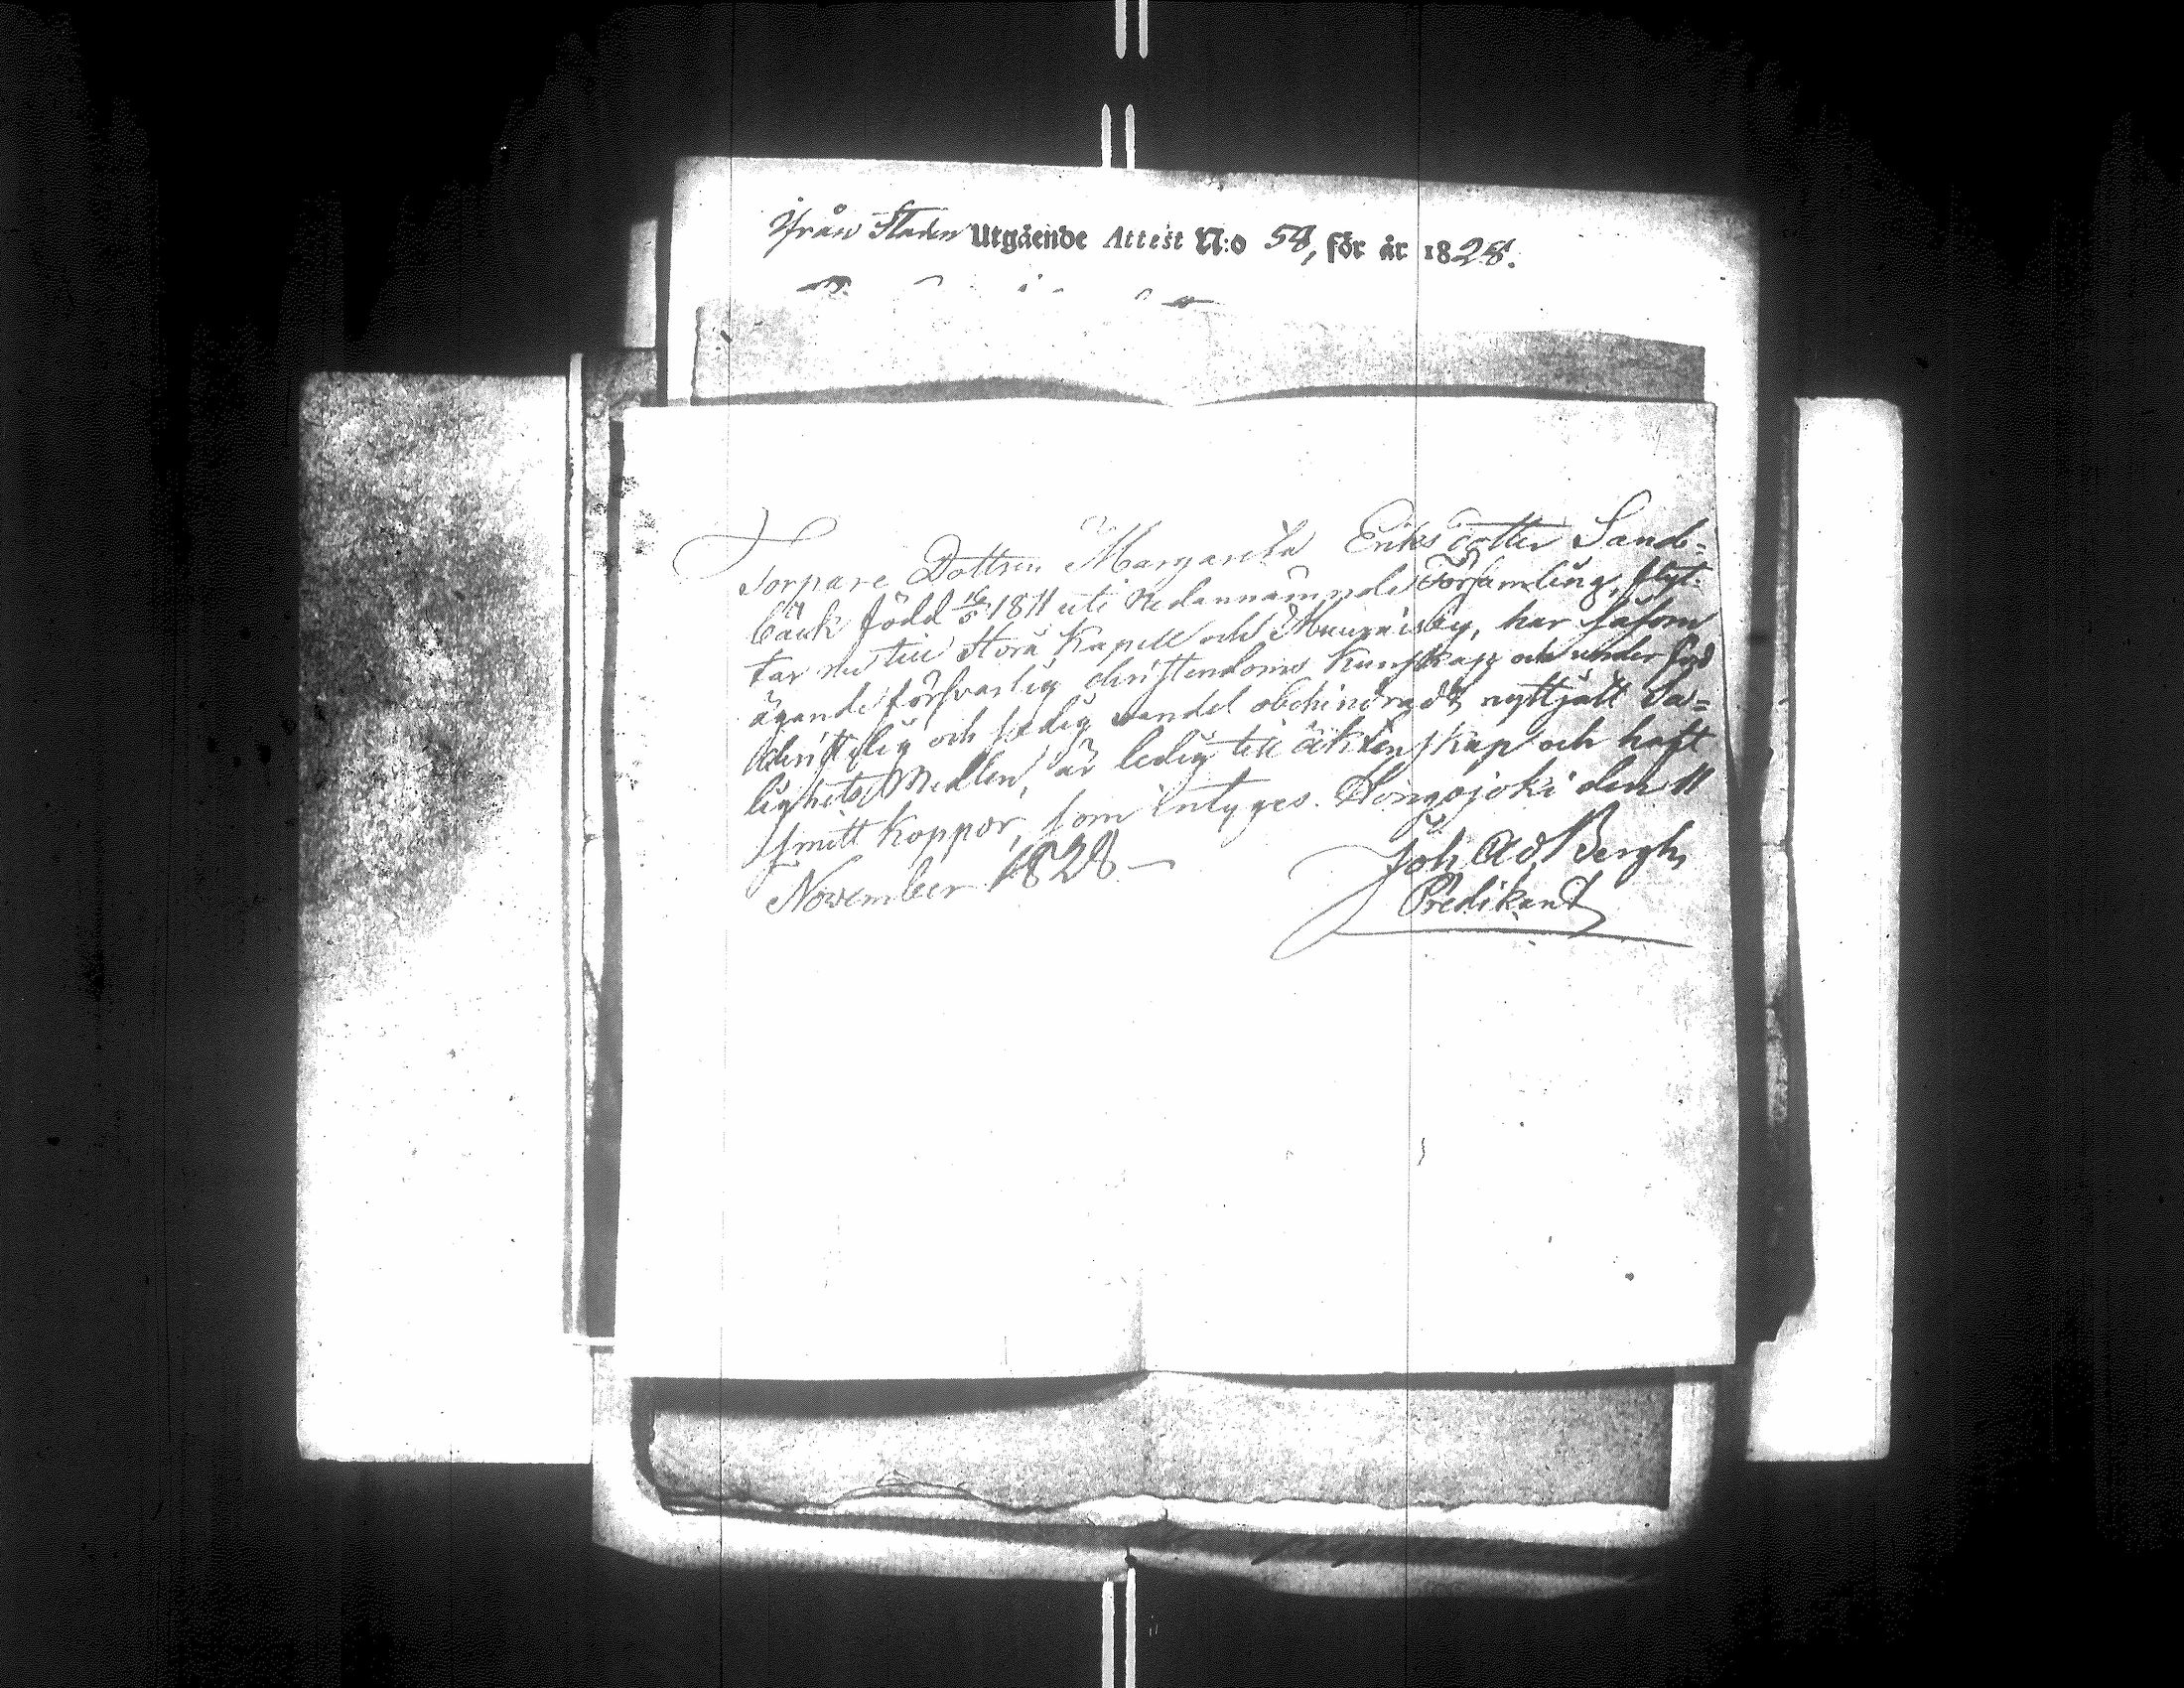 ifrån Staden Utgående Attest N:o 58, för år 1828.
Torpare Dottren Margareta Eriks dotter Sand=
bäck född 16/5 1811 uti nedannämnde Församling, flyt-
tar nu till Storå Kapell och by, har såsom
ägande försvarlig christendoms kunskap och under fört
christelig och sedig vandel obehindradt nyttjatt Sa=
lighets Medlen, är ledig till äktenskap och haft
smitt koppor, som intyges. Hongojoki den 11
November 1828 —
Joh. Ad. Bergh,
Predikant